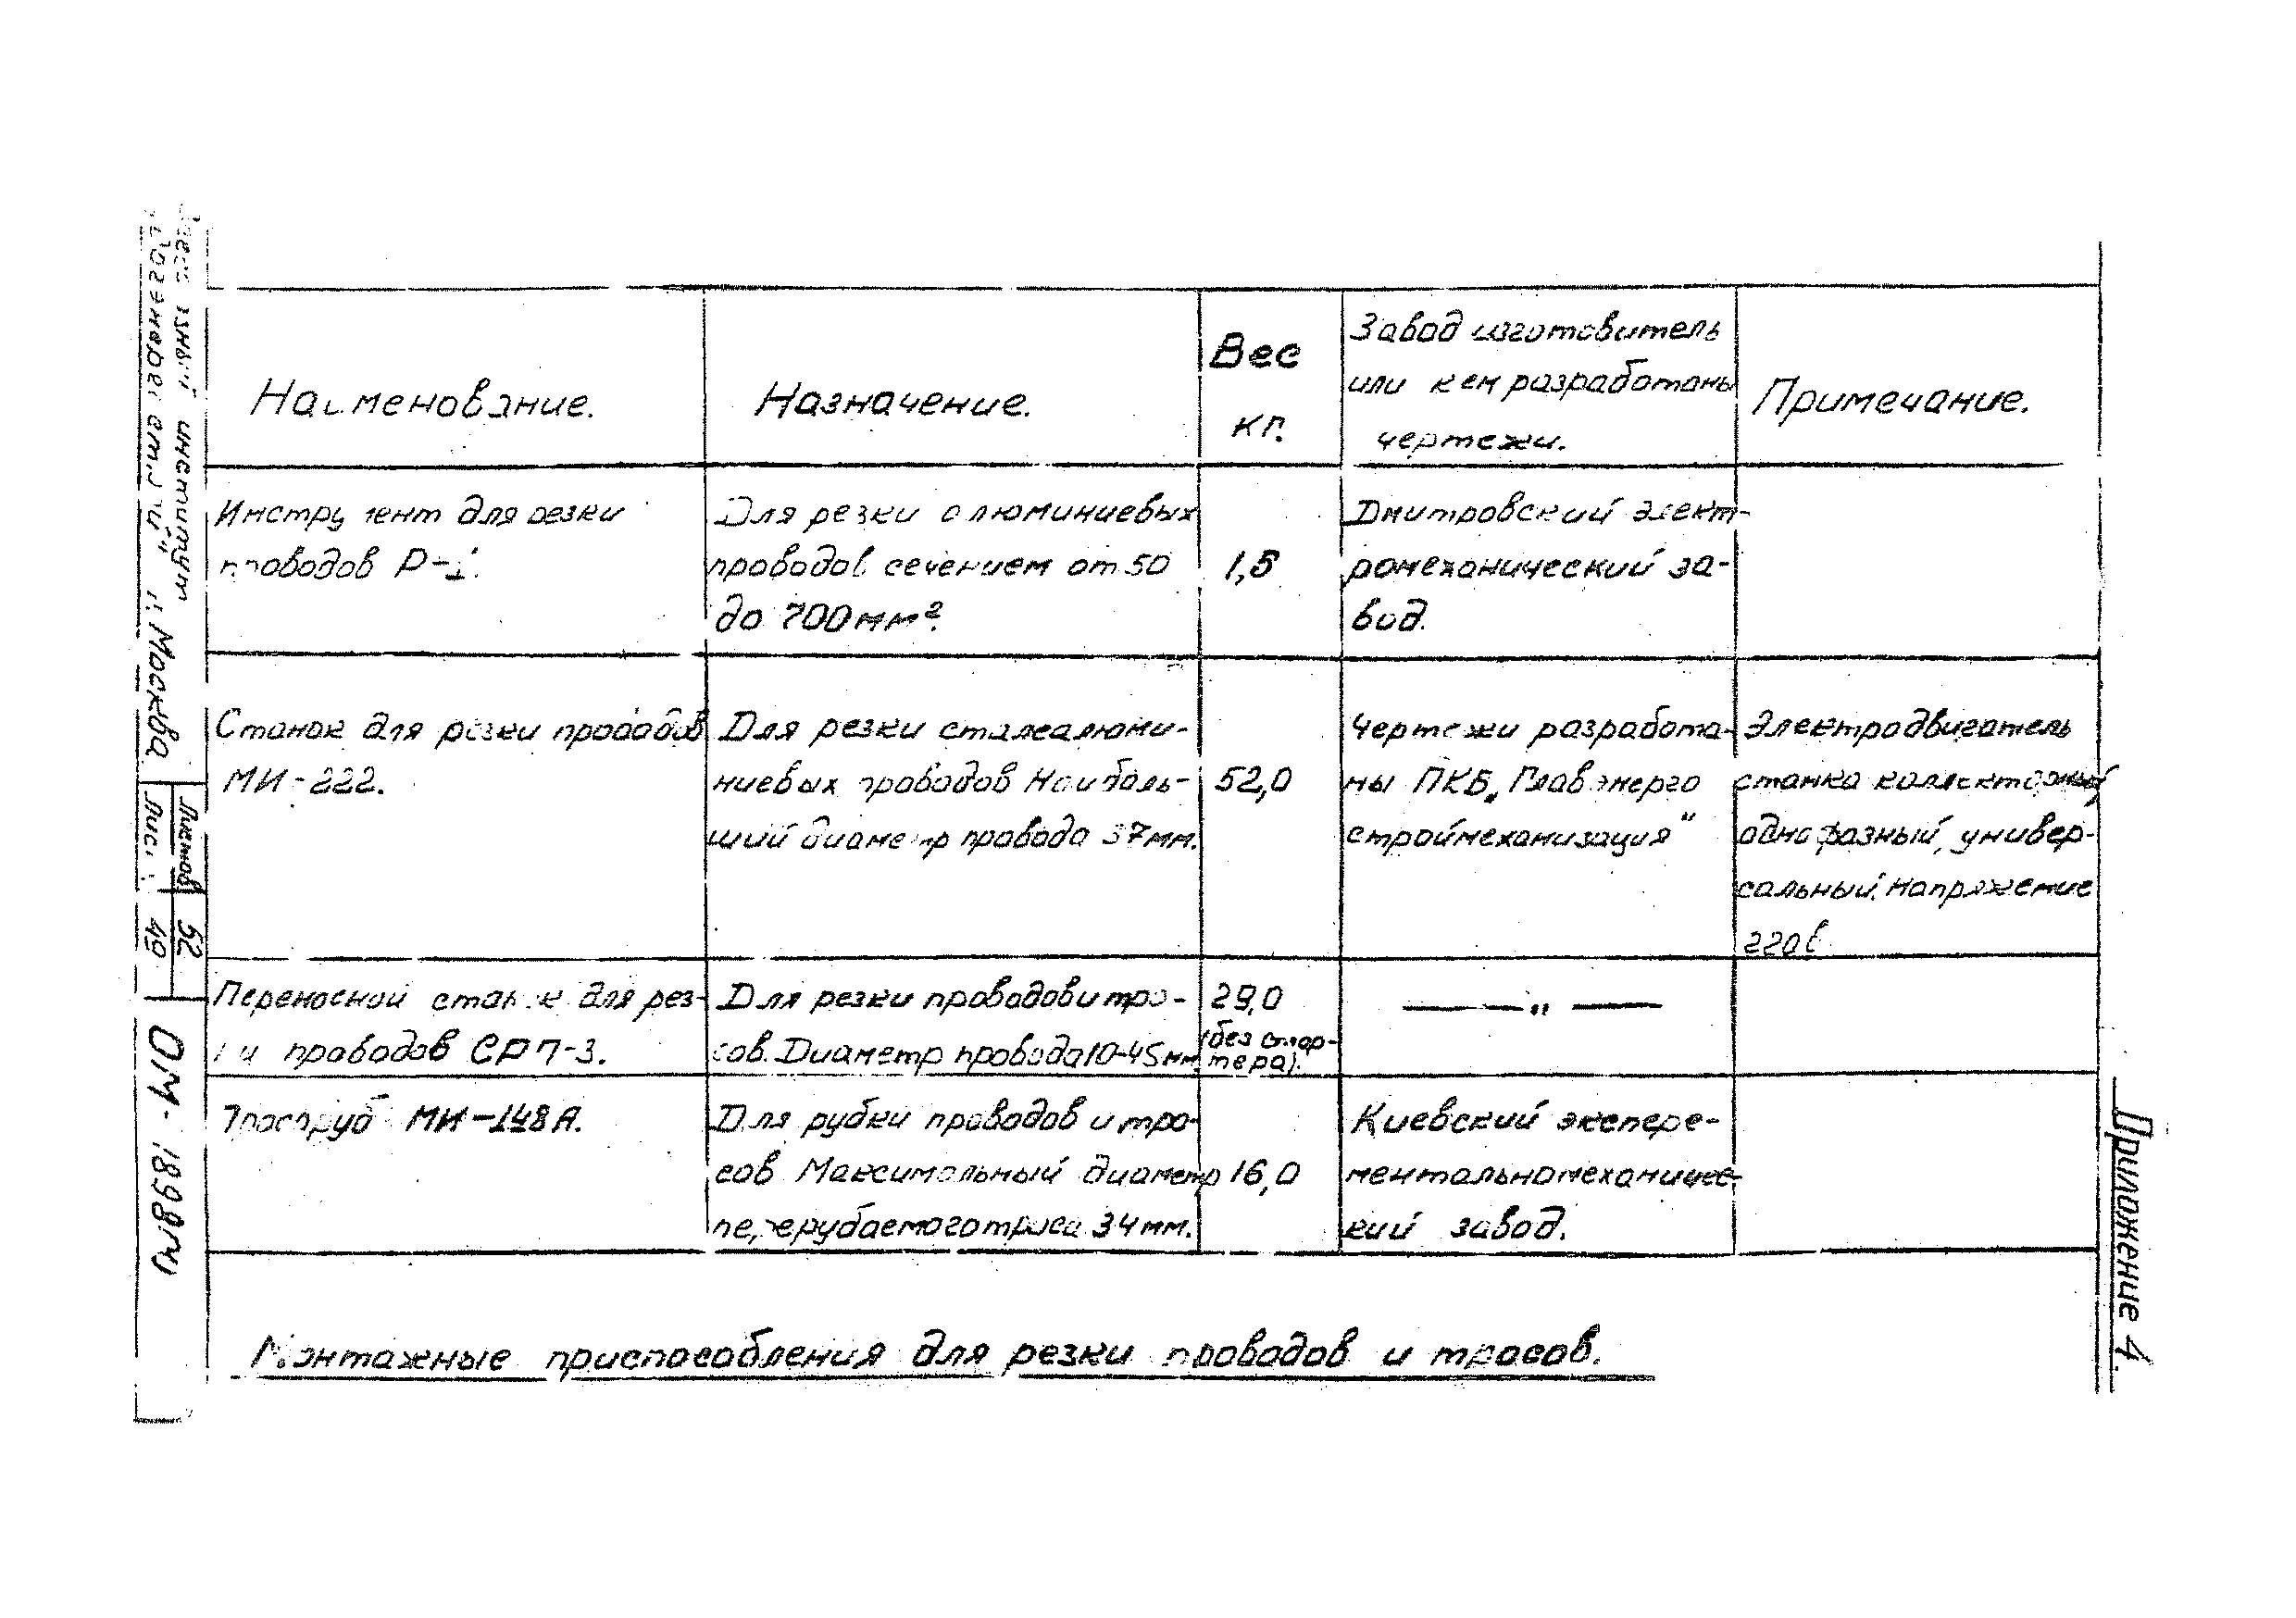 Приложение 4.
Наименование.
Назначение.
Вес
кг.
Завод изготовитель
или кем разработаны
чертежи.
Примечание.
Инструмент для резки
проводов Р-1.
Для резки алюминиевых
проводов сечением от 50
до 700 мм².
1,5
Дмитровский элект-
ромеханический за-
вод.
Станок для резки проводов
МИ-222.
Для резки сталеалюми-
ниевых проводов Наиболь-
ший диаметр провода 37 мм.
52,0
Чертежи разработа-
ны ПКБ „Главэнерго
строймеханизация"
Электродвигатель
станка коллекторный
однофазный, универ-
сальный. Напряжение
220в
Переносной станок для рез-
ки проводов СРП-3.
Для резки проводов и тро-
сов. Диаметр провода 10-45мм.
29,0
(без стар-
тера).
— " —
Тросоруб МИ-148А.
Для рубки проводов и тро-
сов Максимальный диаметр
перерубаемого троса 34 мм.
16,0
Киевский экспере-
ментальномеханичес-
кий завод.
Монтажные приспособления для резки проводов и тросов.
институт
г. Москва
Листов 52
Лист 49
ОМ-1898тм